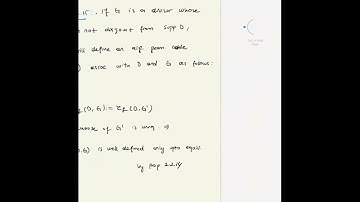 .15: . If G is a divisor whose
not disjoint from supp D,
will define an alg. geom code
) assoc with D and G as follows:
(D, G) := C_L (D, G')
of G' is unq. ⇒
, G) is well defined only upto equiv
by prop 2.2.14